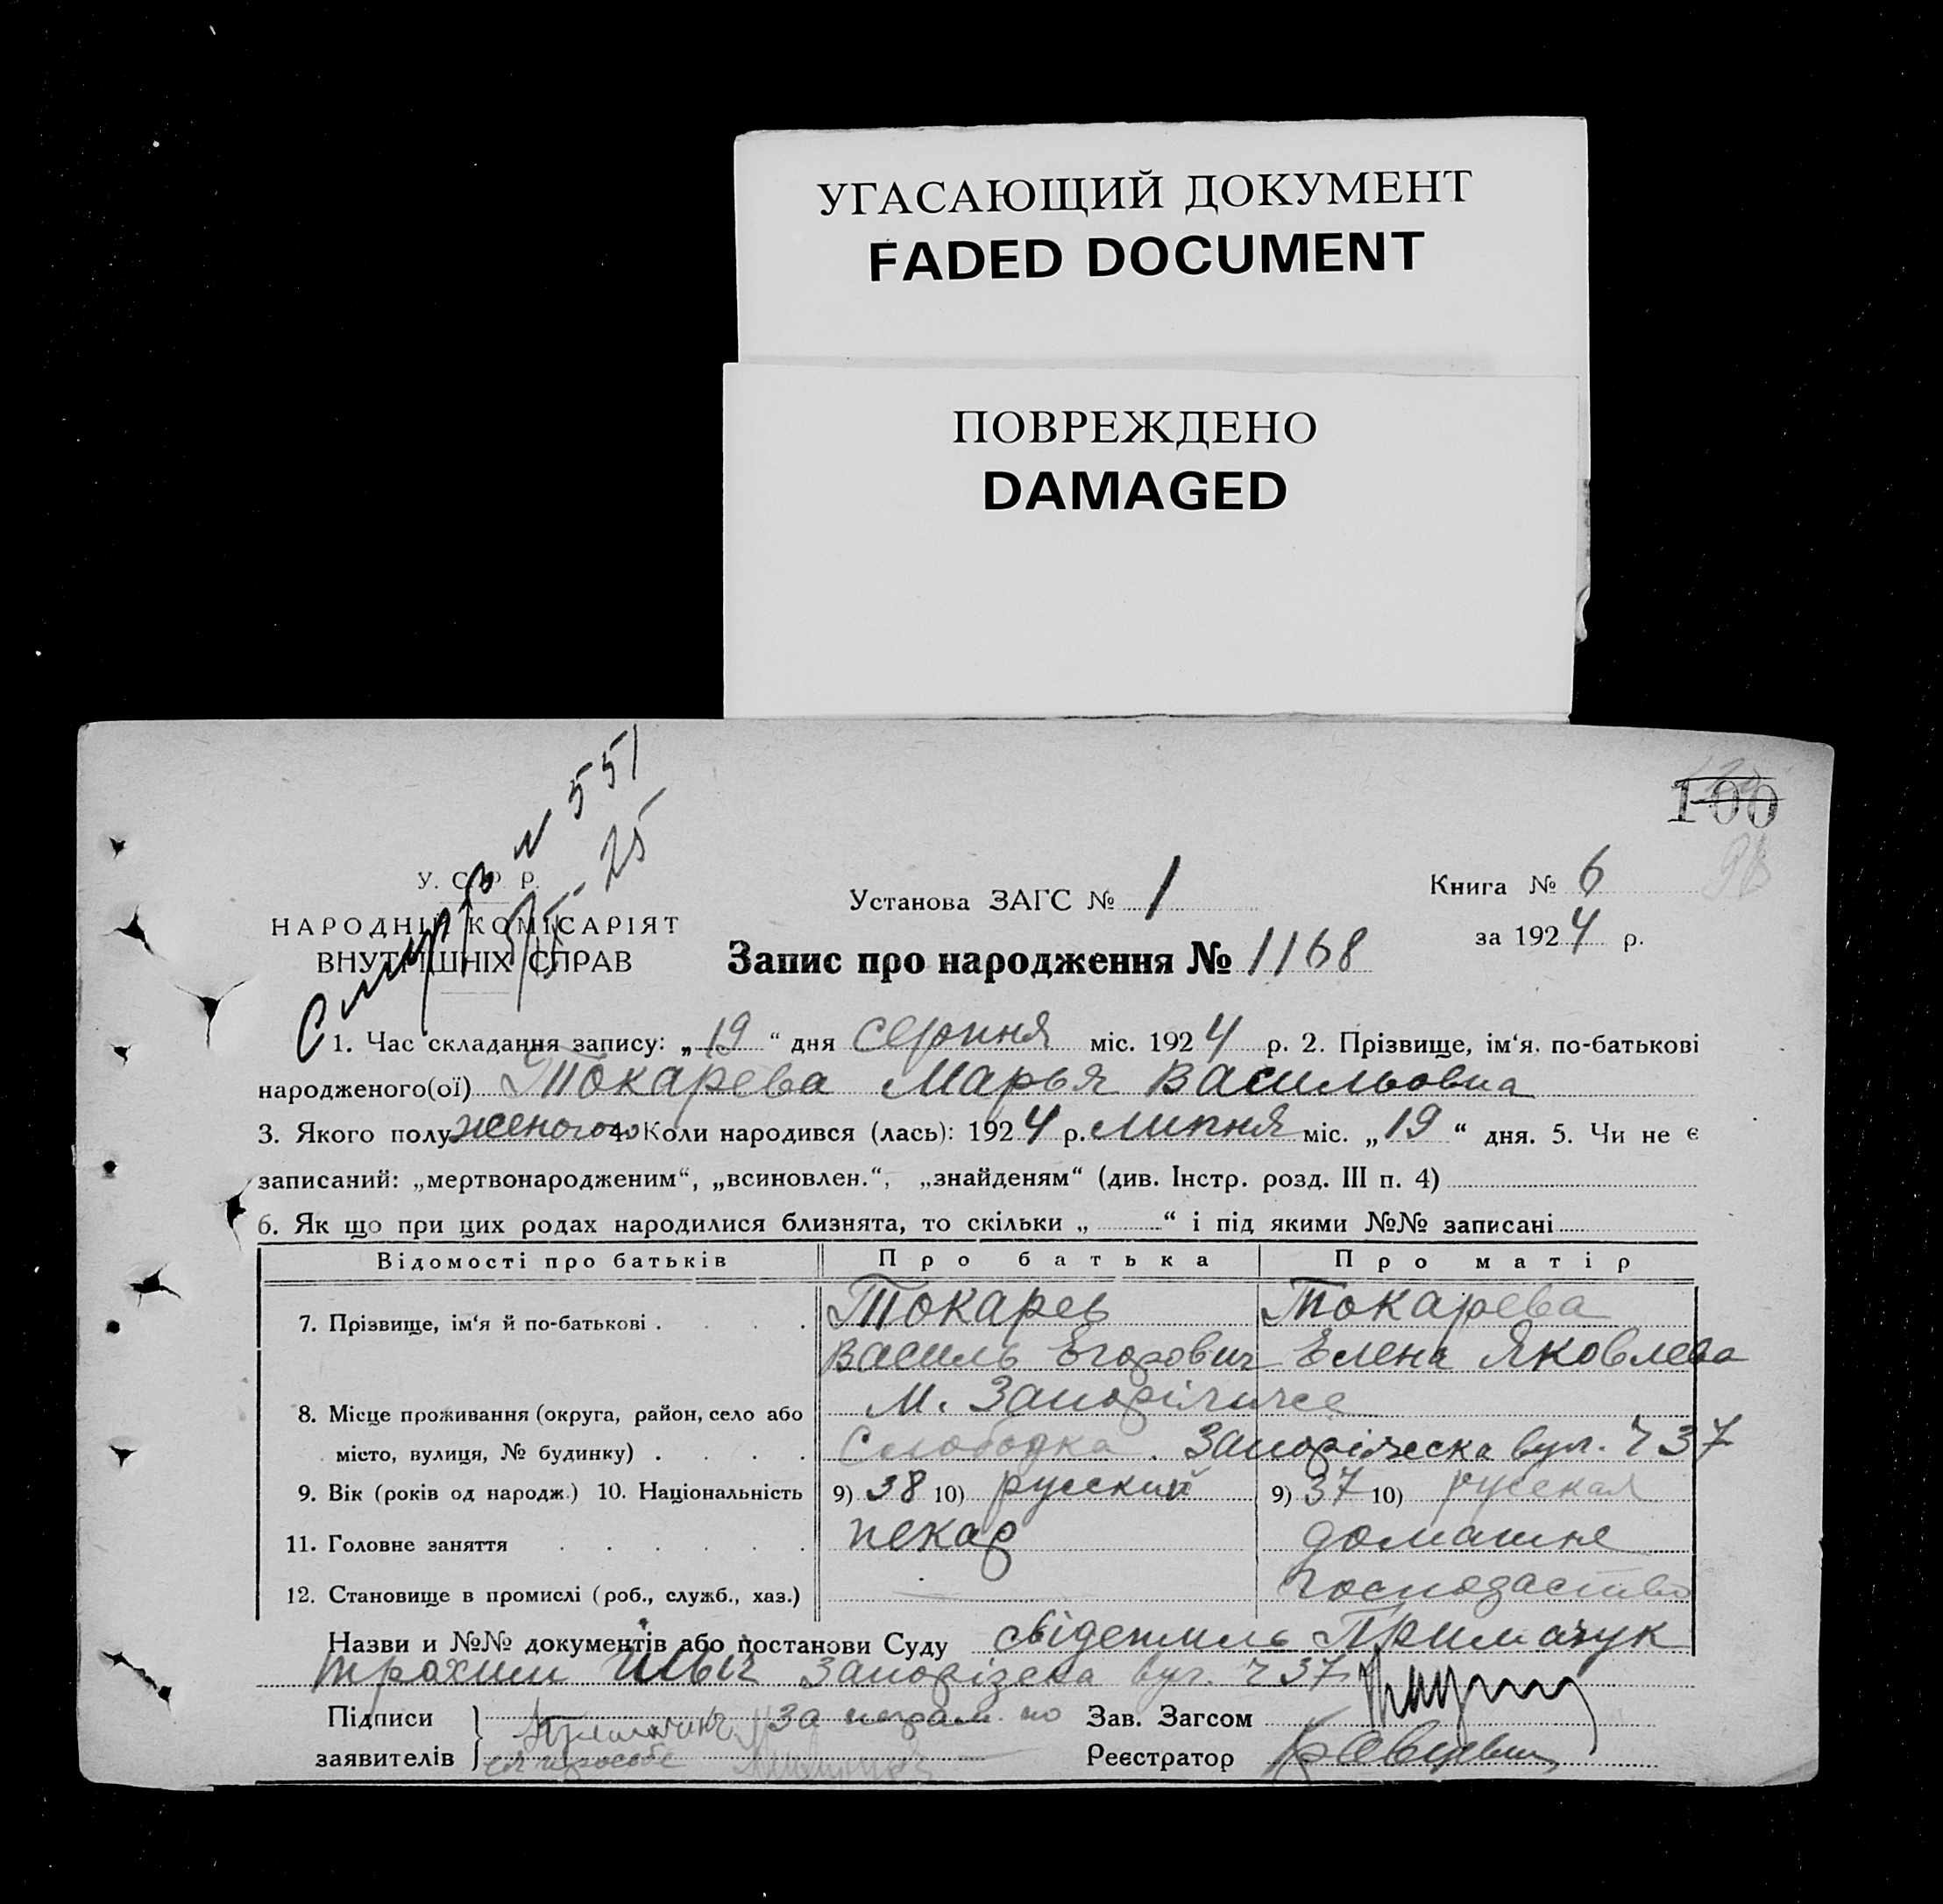 УГАСАЮЩИЙ ДОКУМЕНТ
FADED DOCUMENT
ПОВРЕЖДЕНО
DAMAGED
100
N 551
25
У. С. Р. Р.
НАРОДНІЙ КОМІСАРІЯТ
ВНУТРІШНІХ СПРАВ
Установа ЗАГС № 1
Книга № 6
за 1924 р.
Запис про народження № 1168
1. Час складання запису: „19“ дня серпня міс. 1924 р. 2. Прізвище, ім‘я, по-батькові
народженого(ої) Токарева Марья Васильовна
3. Якого полу женого 4. Коли народився (лась): 1924 р. липня міс. „19“ дня. 5. Чи не є
записаний: „мертвонародженим“, „всиновлен.“, „знайденям“ (див. Інстр. розд. III п. 4)
6. Як що при цих родах народилися близнята, то скільки „ “ і під якими №№ записані
Відомості про батьків Про батька Про матір
7. Прізвище, ім‘я й по-батькові . . . . Токарев Токарева
Василь Егорович Елена Яковлева
8. Місце проживання (округа, район, село або М.
місто, вулиця, № будинку) . . . . Слободка. вул. ч 37
9. Вік (років од народж.) 10. Національність 9) 38 10) русский 9) 37 10) русская
11. Головне заняття . . . . . . пекар домашне
12. Становище в промислі (роб., служб., хаз.) господаство
Назви и №№ документів або постанови Суду свідетиль Примачук
трохим Ильич Запорізска вул. ч 37
Підписи За по Зав. Загсом
заявителів Реєстратор